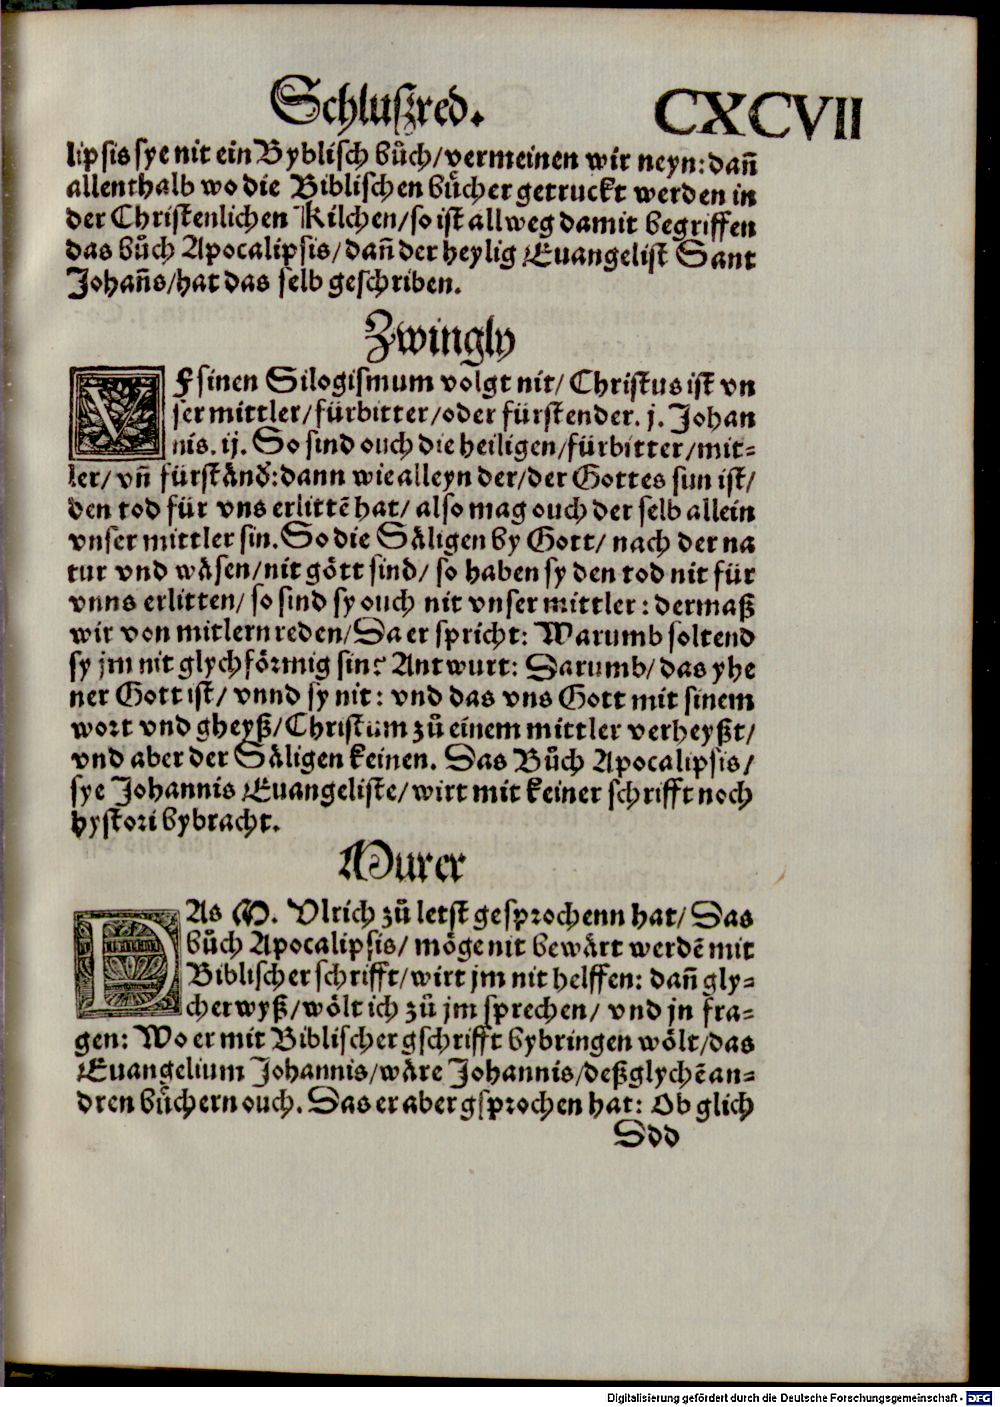 Schluszred. CXCVII
lipsis sye nit ein Byblisch bůch/vermeinen wir neyn: dañ
allenthalb wo die Biblischen bůcher getruckt werden in
der Christenlichen Kilchen/so ist allweg damit begriffen
das bůch Apocalipsis/dañ der heylig Euangelist Sant
Johañs/hat das selb geschriben.
Zwingly
VF sinen Silogismum volgt nit/ Christus ist vn
ser mittler/fürbitter/oder fürstender. j. Johan
nis. ij. So sind ouch die heiligen/fürbitter/mit⸗
ler/ vñ fürständ: dann wie alleyn der/der Gottes sun ist/
den tod für vns erlittē hat/ also mag ouch der selb allein
vnser mittler sin. So die Säligen by Gott/ nach der na
tur vnd wäsen/nit gött sind/ so haben sy den tod nit für
vnns erlitten/ so sind sy ouch nit vnser mittler: dermaß
wir von mitlern reden/Da er spricht: Warumb soltend
sy jm nit glychförmig sin? Antwurt: Darumb/ das yhe
ner Gott ist/ vnnd sy nit: vnd das vns Gott mit sinem
wort vnd gheyß/Christum zů einem mittler verheyßt/
vnd aber der Säligen keinen. Das Bůch Apocalipsis/
sye Johannis Euangeliste/wirt mit keiner schrifft noch
hystori bybracht.
Murer
DAs M. Vlrich zů letst gesprochenn hat/ Das
bůch Apocalipsis/ möge nit bewärt werdē mit
Biblischer schrifft/wirt jm nit helffen: dañ gly⸗
cher wyß/wölt ich zů jm sprechen/ vnd jn fra⸗
gen: Wo er mit Biblischer gschrifft bybringen wölt/das
Euangelium Johannis/wäre Johannis/deßglychē an⸗
dren bůchern ouch. Das er aber gsprochen hat: Ob glich
Ddd
Digitalisierung gefördert durch die Deutsche Forschungsgemeinschaft - DFG